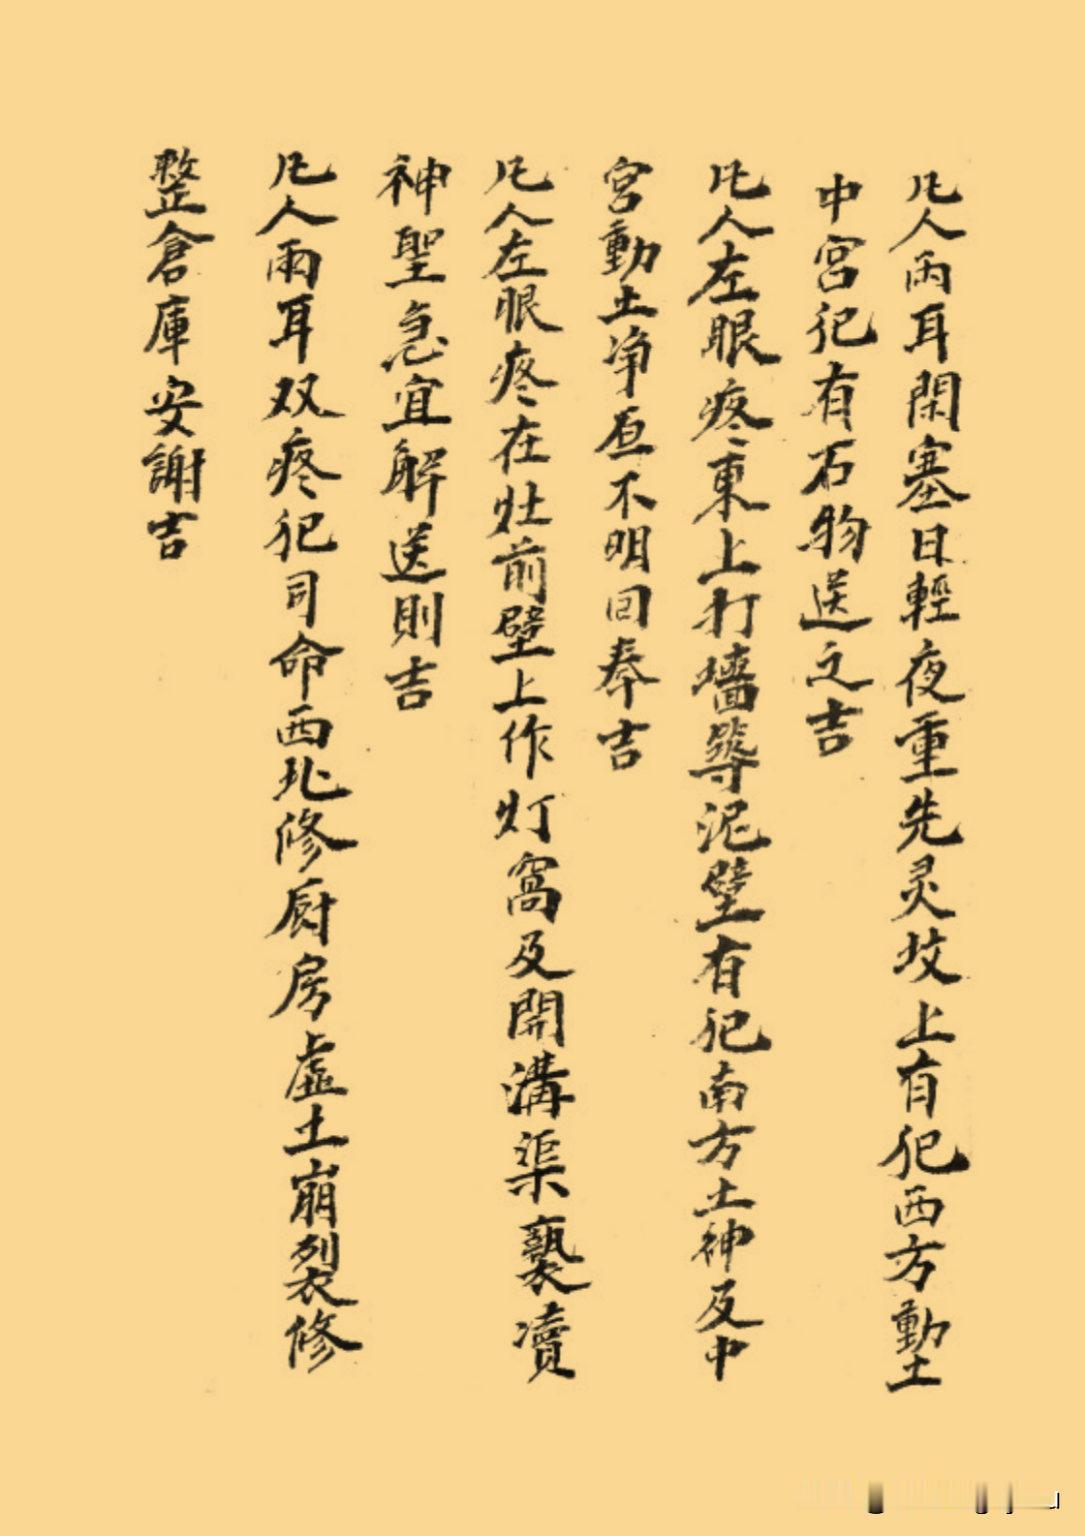 凡人兩耳閉塞日輕夜重先灵坟上有犯西方動土
中宮犯有石物送之吉
凡人左眼疼東上打墻等泥壁有犯南方土神及中
宮動土净原不明回奉吉
凡人左眼疼在灶前壁上作灯窩及開溝渠褻瀆
神聖急宜解送則吉
凡人兩耳双疼犯司命西北修厨房虛土崩裂修
整倉庫安謝吉